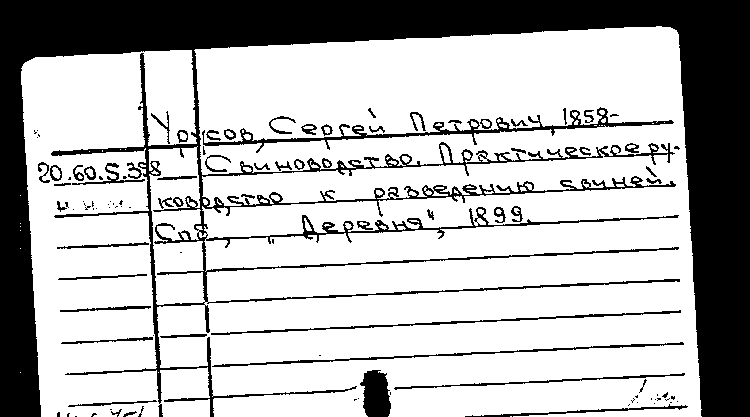 Урусов, Сергей Петрович, 1858-
20.60.S.398 Свиноводство. Практическое ру-
ководство к разведению свиней.
Спб, „Деревня", 1899.